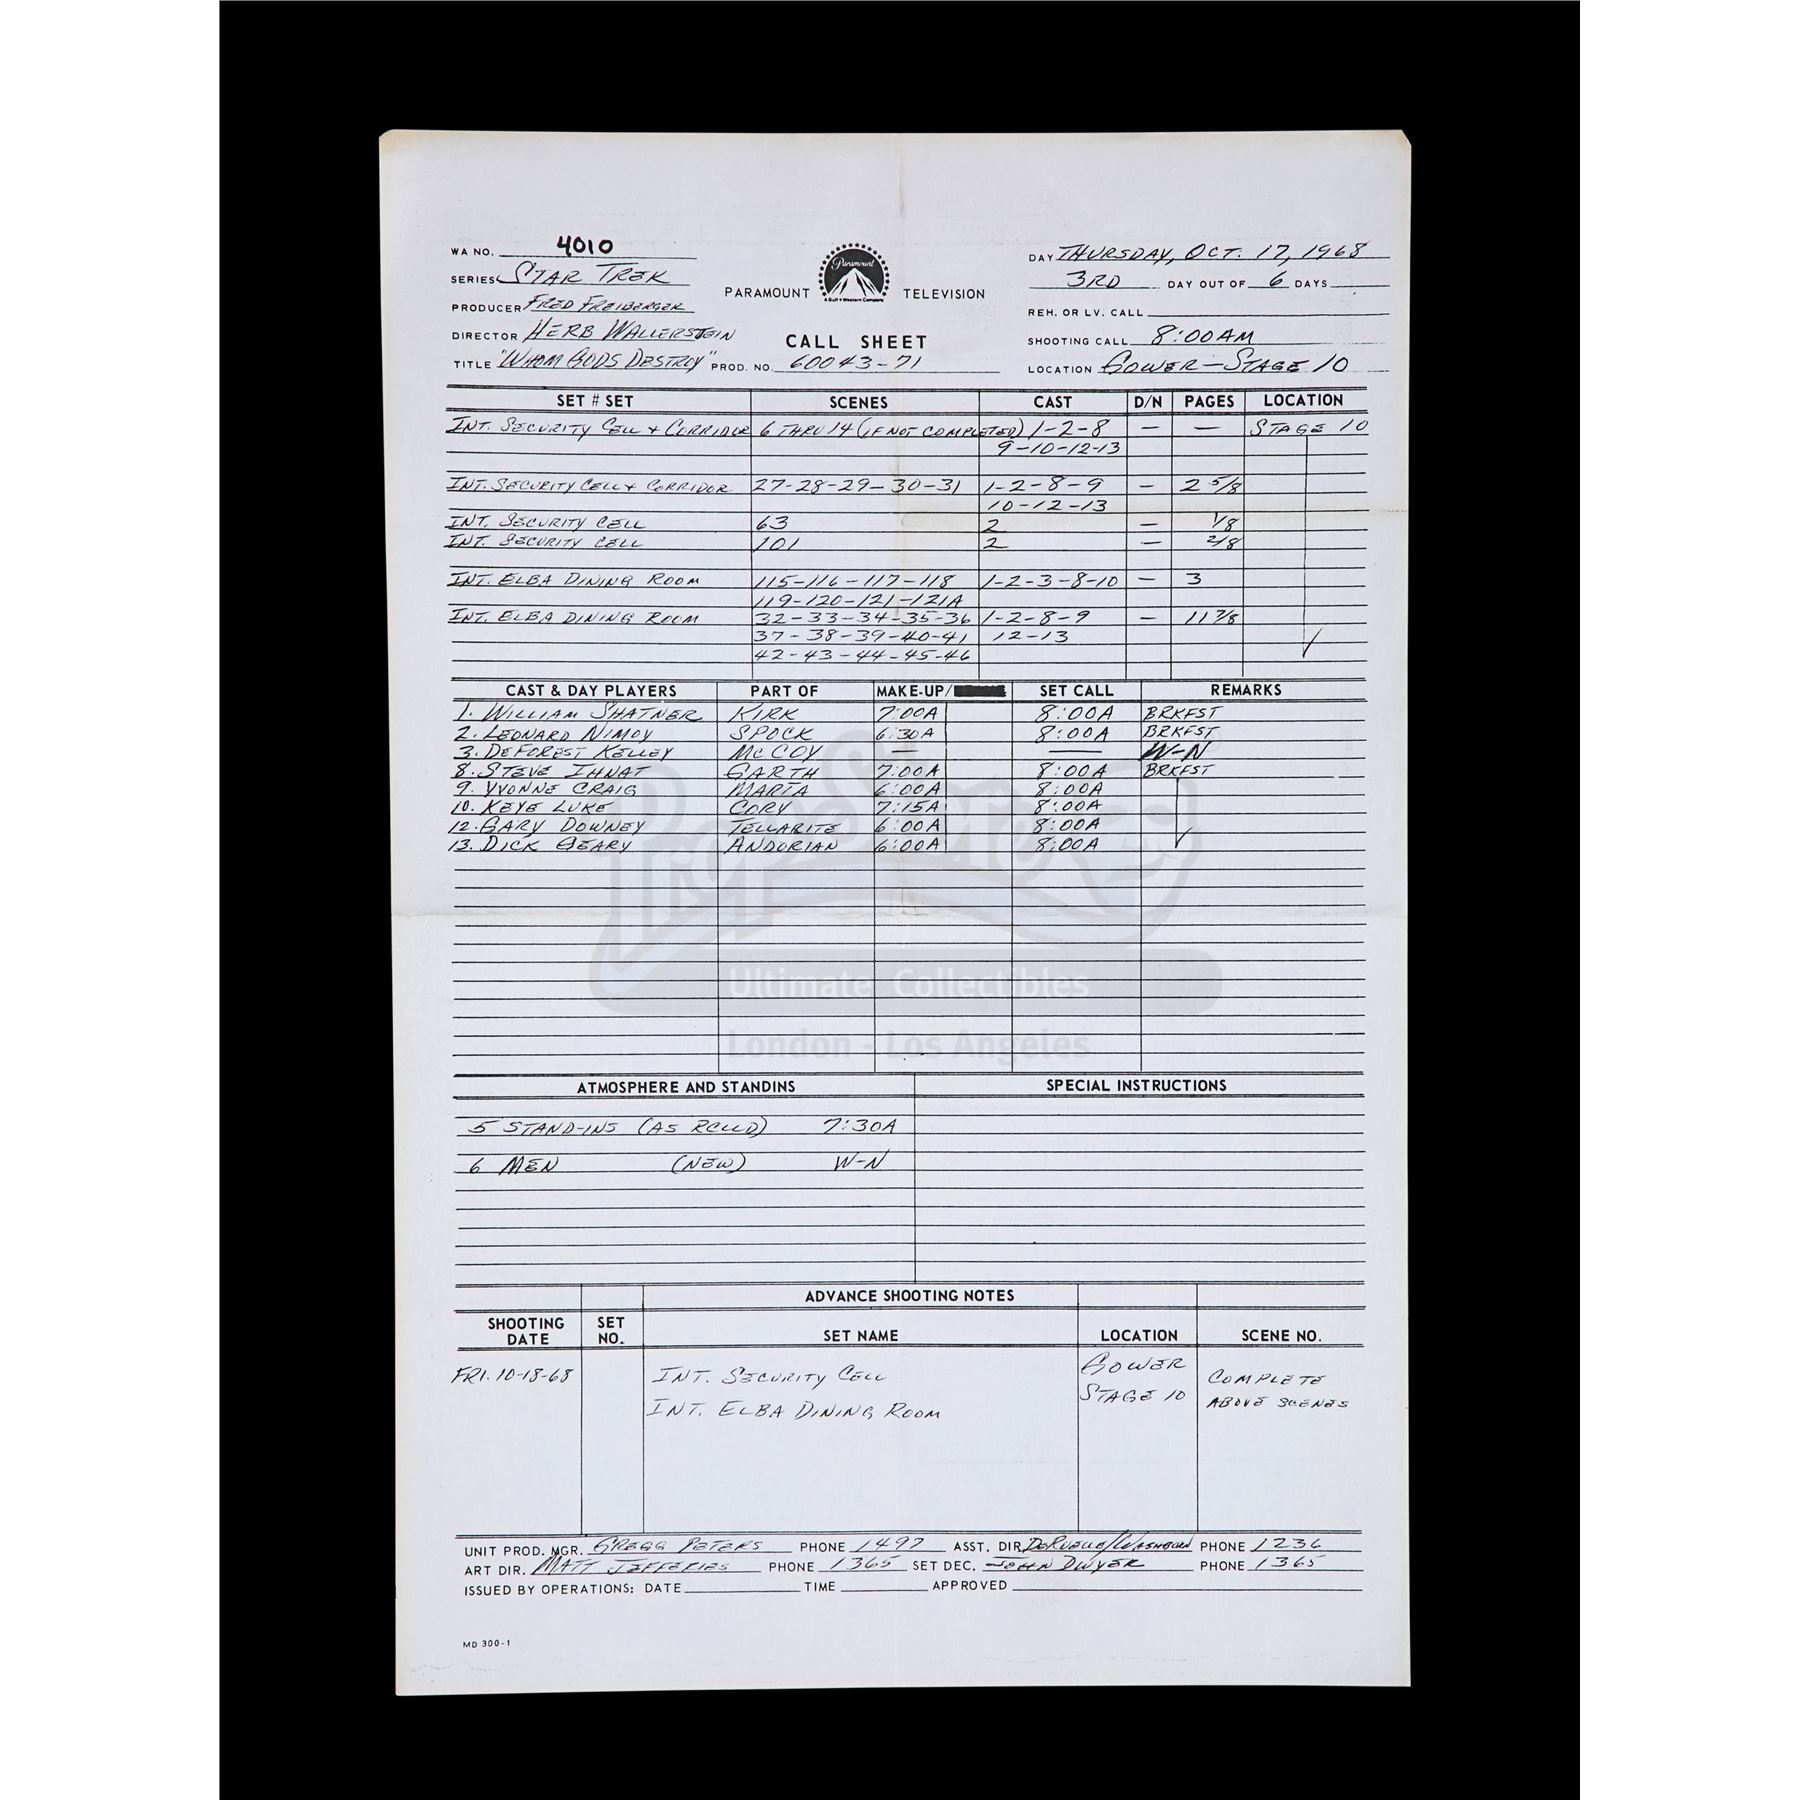 WA NO. 4010
SERIES STAR TREK
PRODUCER FRED FREIBERGER
DIRECTOR HERB WALLERSTEIN
TITLE "WHOM GODS DESTROY" PROD. NO. 60043-71
Paramount
A Gulf + Western Company
PARAMOUNT TELEVISION
CALL SHEET
DAY THURSDAY, OCT. 17, 1968
3RD DAY OUT OF 6 DAYS
REH. OR LV. CALL
SHOOTING CALL 8:00AM
LOCATION GOWER—STAGE 10
SET # SET SCENES CAST D/N PAGES LOCATION
INT. SECURITY CELL + CORRIDOR 6 THRU 14 (IF NOT COMPLETED) 1-2-8 — — STAGE 10
9-10-12-13
INT. SECURITY CELL + CORRIDOR 27-28-29-30-31 1-2-8-9 — 2 5/8
10-12-13
INT. SECURITY CELL 63 2 — 1/8
INT. SECURITY CELL 101 2 — 2/8
INT. ELBA DINING ROOM 115-116-117-118 1-2-3-8-10 — 3
119-120-121-121A
INT. ELBA DINING ROOM 32-33-34-35-36 1-2-8-9 — 11 7/8
37-38-39-40-41 12-13
42-43-44-45-46
CAST & DAY PLAYERS PART OF MAKE-UP/ SET CALL REMARKS
1. WILLIAM SHATNER KIRK 7:00A 8:00A BRKFST
2. LEONARD NIMOY SPOCK 6:30A 8:00A BRKFST
3. DEFOREST KELLEY MCCOY — — W-N
8. STEVE IHNAT GARTH 7:00A 8:00A BRKFST
9. YVONNE CRAIG MARTA 6:00A 8:00A
10. KEYE LUKE CORY 7:15A 8:00A
12. GARY DOWNEY TELLARITE 6:00A 8:00A
13. DICK GEARY ANDORIAN 6:00A 8:00A
PropStore
Ultimate Collectibles
London - Los Angeles
ATMOSPHERE AND STANDINS SPECIAL INSTRUCTIONS
5 STAND-INS (AS RCLLD) 7:30A
6 MEN (NEW) W-N
ADVANCE SHOOTING NOTES
SHOOTING DATE SET NO. SET NAME LOCATION SCENE NO.
FRI. 10-18-68 INT. SECURITY CELL GOWER COMPLETE
INT. ELBA DINING ROOM STAGE 10 ABOVE SCENES
UNIT PROD. MGR. GREGG PETERS PHONE 1497 ASST. DIR. DERUELLE/WASHBURN PHONE 1236
ART DIR. MATT JEFFERIES PHONE 1365 SET DEC. JOHN DWYER PHONE 1365
ISSUED BY OPERATIONS: DATE TIME APPROVED
MD 300-1